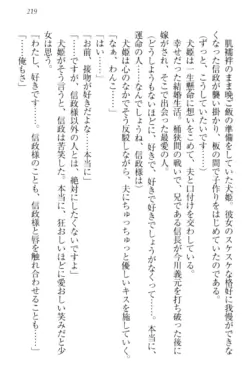 219
肌襦袢のまま晩ご飯の準備をしていた犬姫。彼女のスケスケな格好に我慢ができな
くなった信政が襲いかかり、板の間で子作りをしているのだ。
(ずっと、こうしていたい……)
犬姫は、一生懸命に想いをこめて、夫と口付けを交わす。
幸せだった結婚生活。桶狭間の戦いで兄である信長が今川義元を打ち破った後に
嫁がされ、そこで出会った最愛の人。
(どうしようもないほどに、好きで好きでどうしようもない……本当に、本当に、
運命の人なんですよ、信政様は)
犬姫は心のなかでそう反駁しながら、夫にちゅっちゅっと優しいキスを施していく。
「あなた、わんこ……」
「お前、接吻が好きだな……本当に」
「だって、信政様以外の人とは、絶対にしたくないですもの」
犬姫がそう言うと、信政は苦笑した。本当に、狂おしいほどに愛おしい笑みだと少
女は思う。
「わたし、好きです……信政様のことも、信政様と唇を触れ合わせることも……」
「……俺もさ」